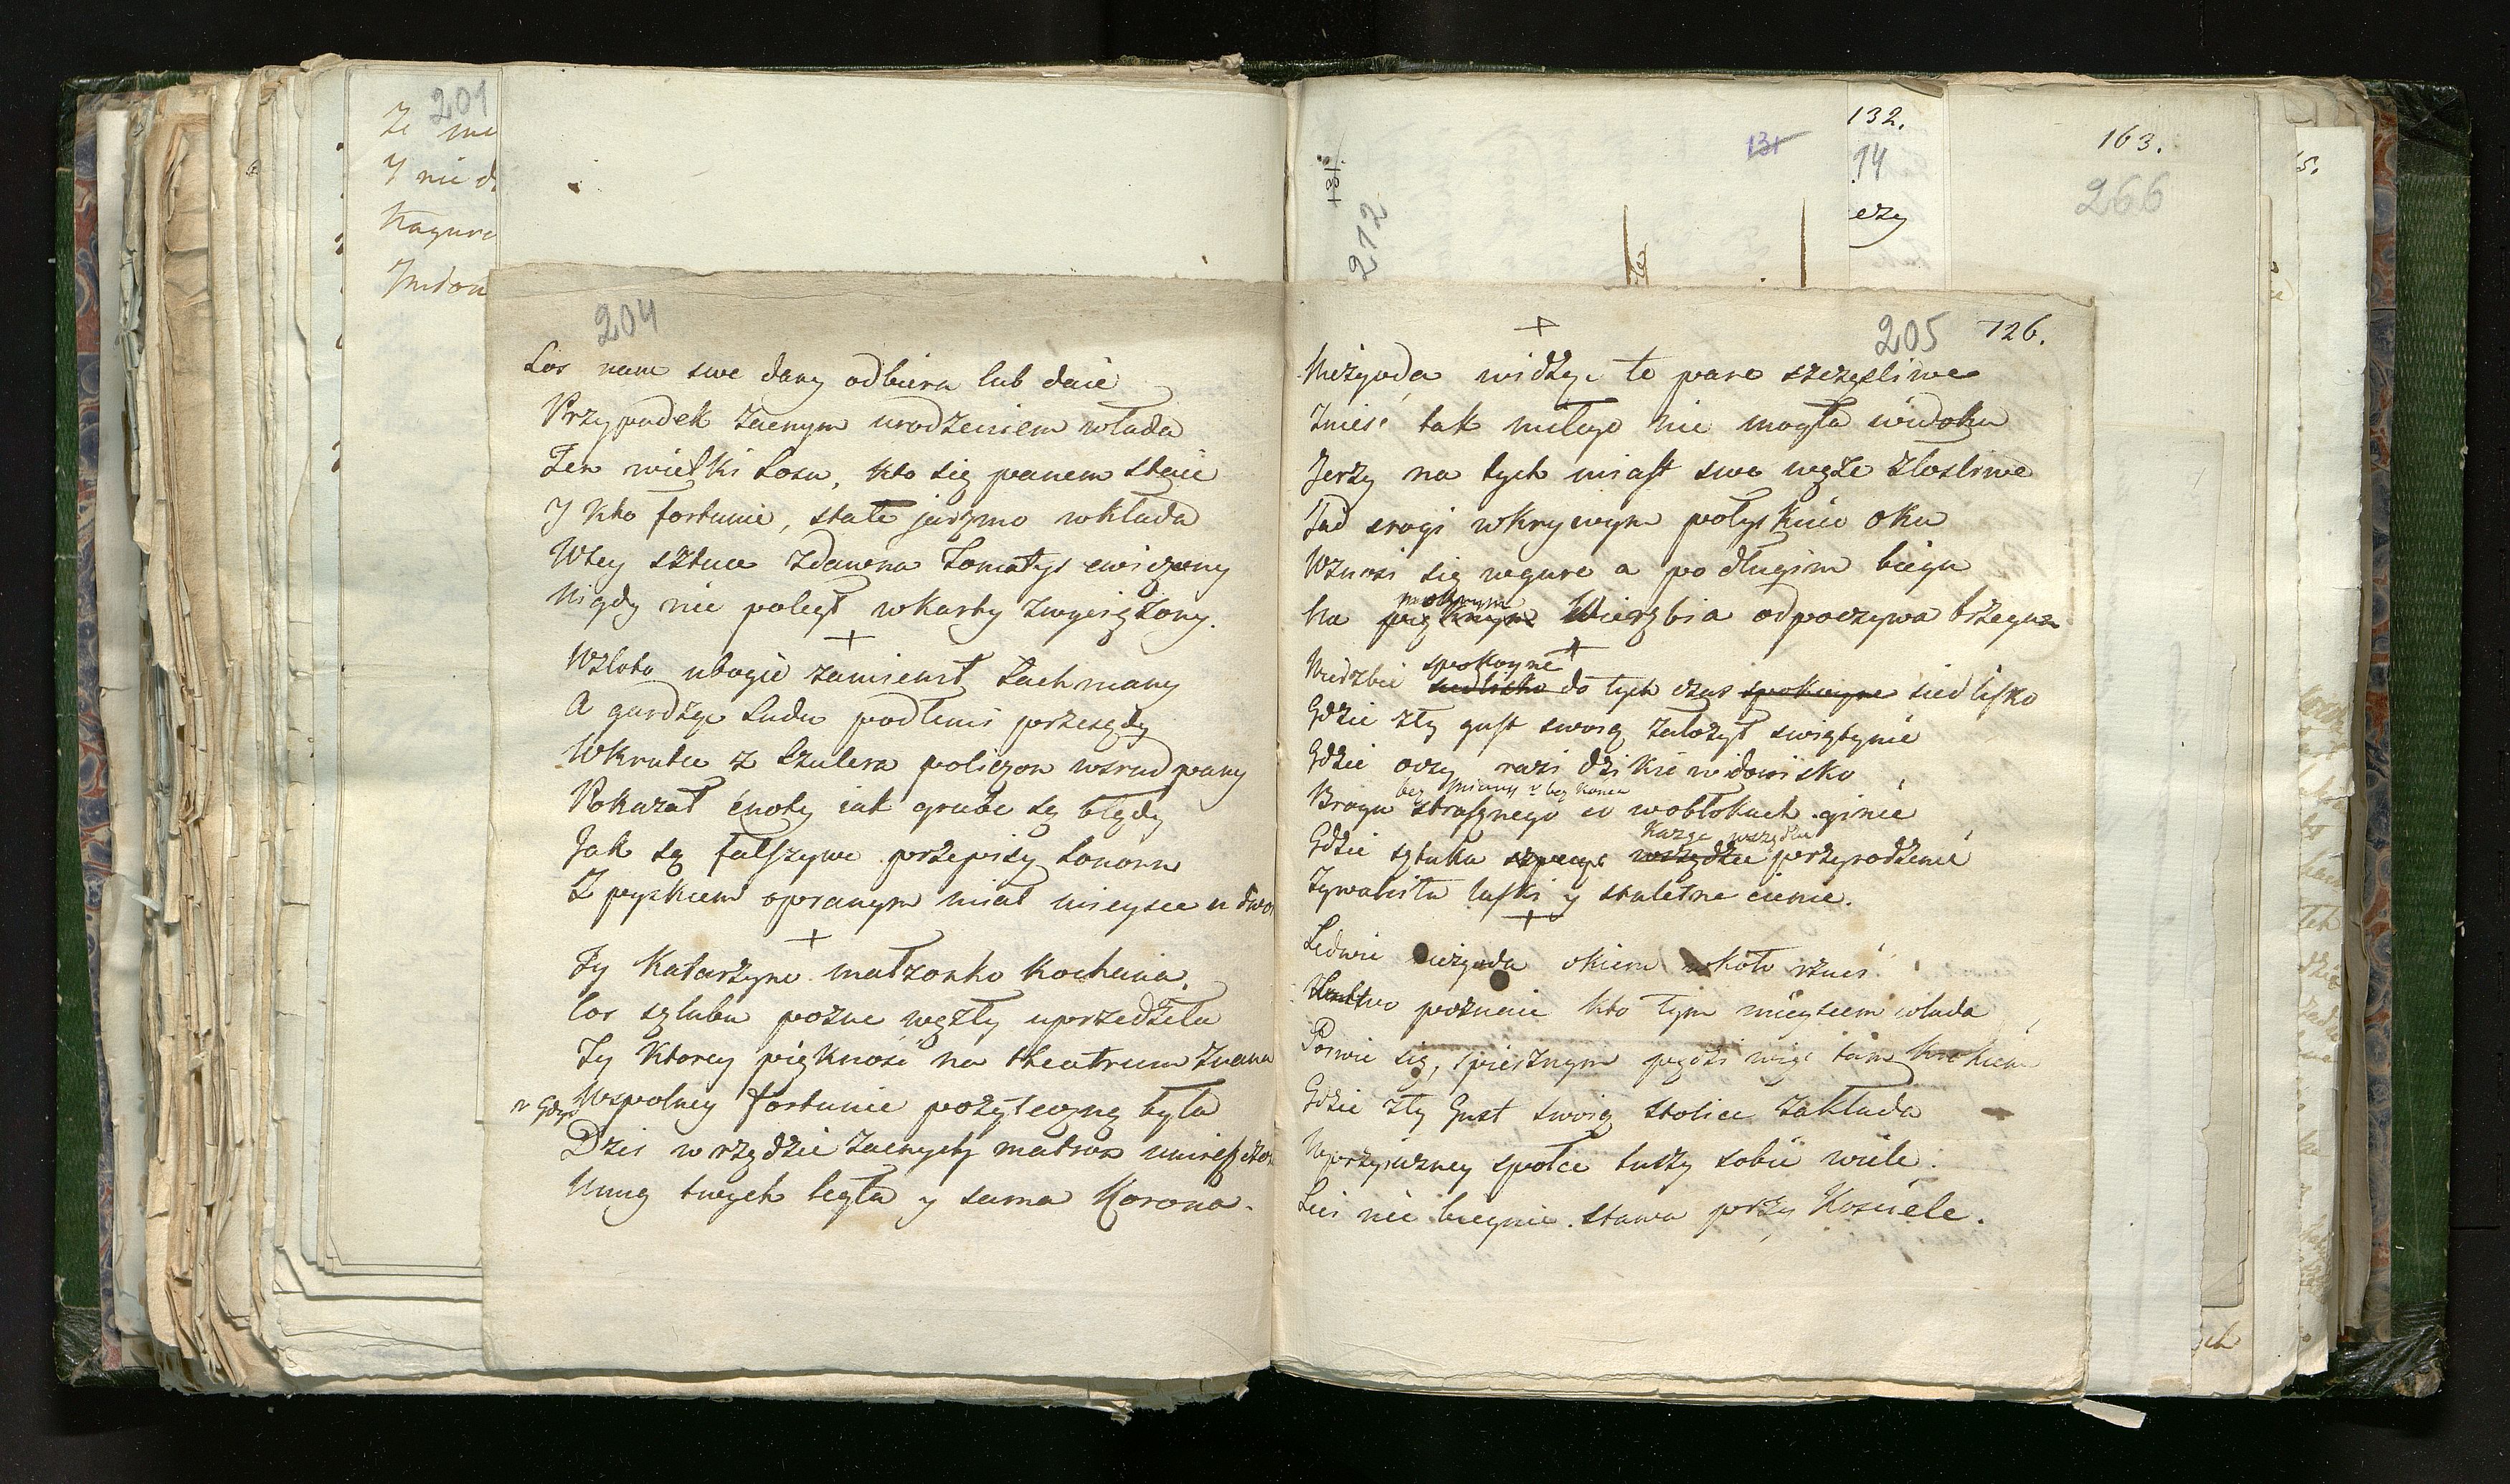 201
Ze
I nie
204
Los nam swe dary odbiera lub daie
Przypadek zacnym urodzeniem włada
Ten wielki Losu, kto się panem staie
I kto fortunie, stałe jarzmo wkłada
Wtey sztuce zdawna Lomatys cwiczony
Nigdy nie poległ wkarby zwyciężony.
+
Wzłoto ubogie zamienił Łachmany
A gardząc Ludu podłemi przesądy
Wkrutce z Szulera policzon wsrud pany
Pokazał cnoty iak grube są błędy
Jak są fałszywe przepisy honoru
Z pyskiem opranym miał mieysce u dwo
+
Ty Katarzyno małzonko kochana,
Cor szlubu pozne węzły uprzedziła
Ty ktorey piękność na theatrum znana
Wspolney fortunie pożyteczną była
Dzis w rzędzie zacnych matron
U nug twych legła y sama Korona.
131.
212
131
132.
74
163.
266
+
205 126.
Niezgoda widząc te pare szczęsliwe
Zniesć tak miłego nie mogła widoku
Jerzy na tych miast swe węże złosliwe
Jad srogi wkrzywym połyskuie oku
Wznosi się wgure a po długim biegu
mokrym
Na pięknym Wierzbia odpoczywa brzegu
+
spokoyne
siedlisko do tych czas spokoyne siedlisko
Gdzie zły gust swoią założył swiątynie
Gdzie oczy razi dzikie widowisko
bez miary y bez konca
Bragu strasznego co wobłokach ginie
Kazge wszędzie
Gdzie sztuka szpeci wszędzie przyrodzenie
Zywalista laski y stuletne cienie.
+
Ledwie niezgoda okiem wkoło rzuci
poznaie kto tym mieyscem włada
Porwie się, spiesznym pędzi więc tam krokiem
Gdzie zły Gust swoią stolice zakłada
Wprzyiazney społce tuszy sobie wiele.
Leci nie biegnie. stawa przy Kosciele.